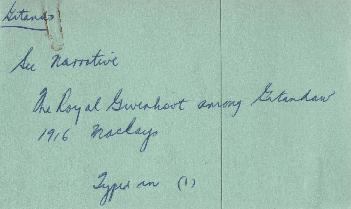 Gitando
See Narrative
The Royal Gwenhoot among Gitandaw
1916 Mackays
Typed in (1)